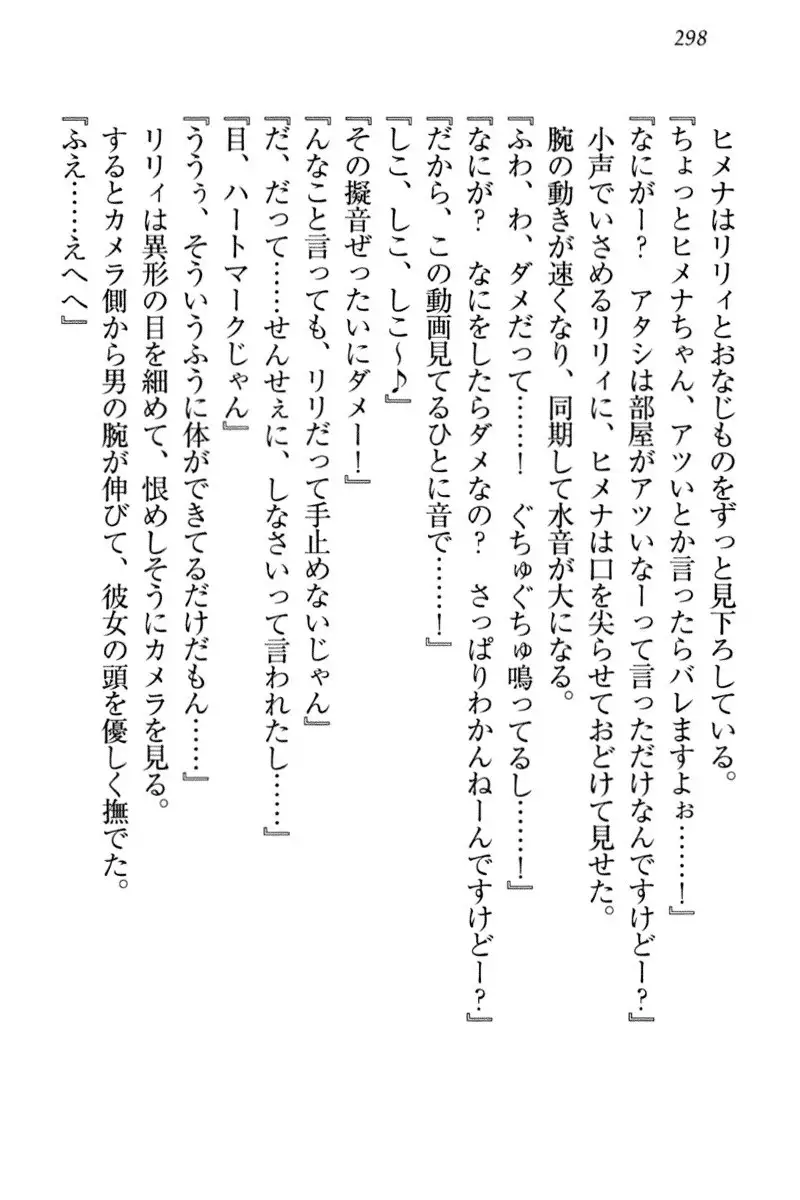 298
ヒメナはリリィとおなじものをずっと見下ろしている。
『ちょっとヒメナちゃん、アツいとか言ったらバレますよぉ……!』
『なにがー? アタシは部屋がアツいなーって言っただけなんですけどー?』
小声でいさめるリリィに、ヒメナは口を尖らせておどけて見せた。
腕の動きが速くなり、同期して水音が大になる。
『ふわ、わ、ダメだって……! ぐちゅぐちゅ鳴ってるし……!』
『なにが? なにをしたらダメなの? さっぱりわかんねーんですけどー?』
『だから、この動画見てるひとに音で……!』
『しこ、しこ、しこ〜♪』
『その擬音ぜったいにダメー!』
『んなこと言っても、リリだって手止めないじゃん』
『だ、だって……せんせぇに、しなさいって言われたし……』
『目、ハートマークじゃん』
『ううぅ、そういうふうに体ができてるだけだもん……』
リリィは異形の目を細めて、恨めしそうにカメラを見る。
するとカメラ側から男の腕が伸びて、彼女の頭を優しく撫でた。
『ふえ……えへへ』